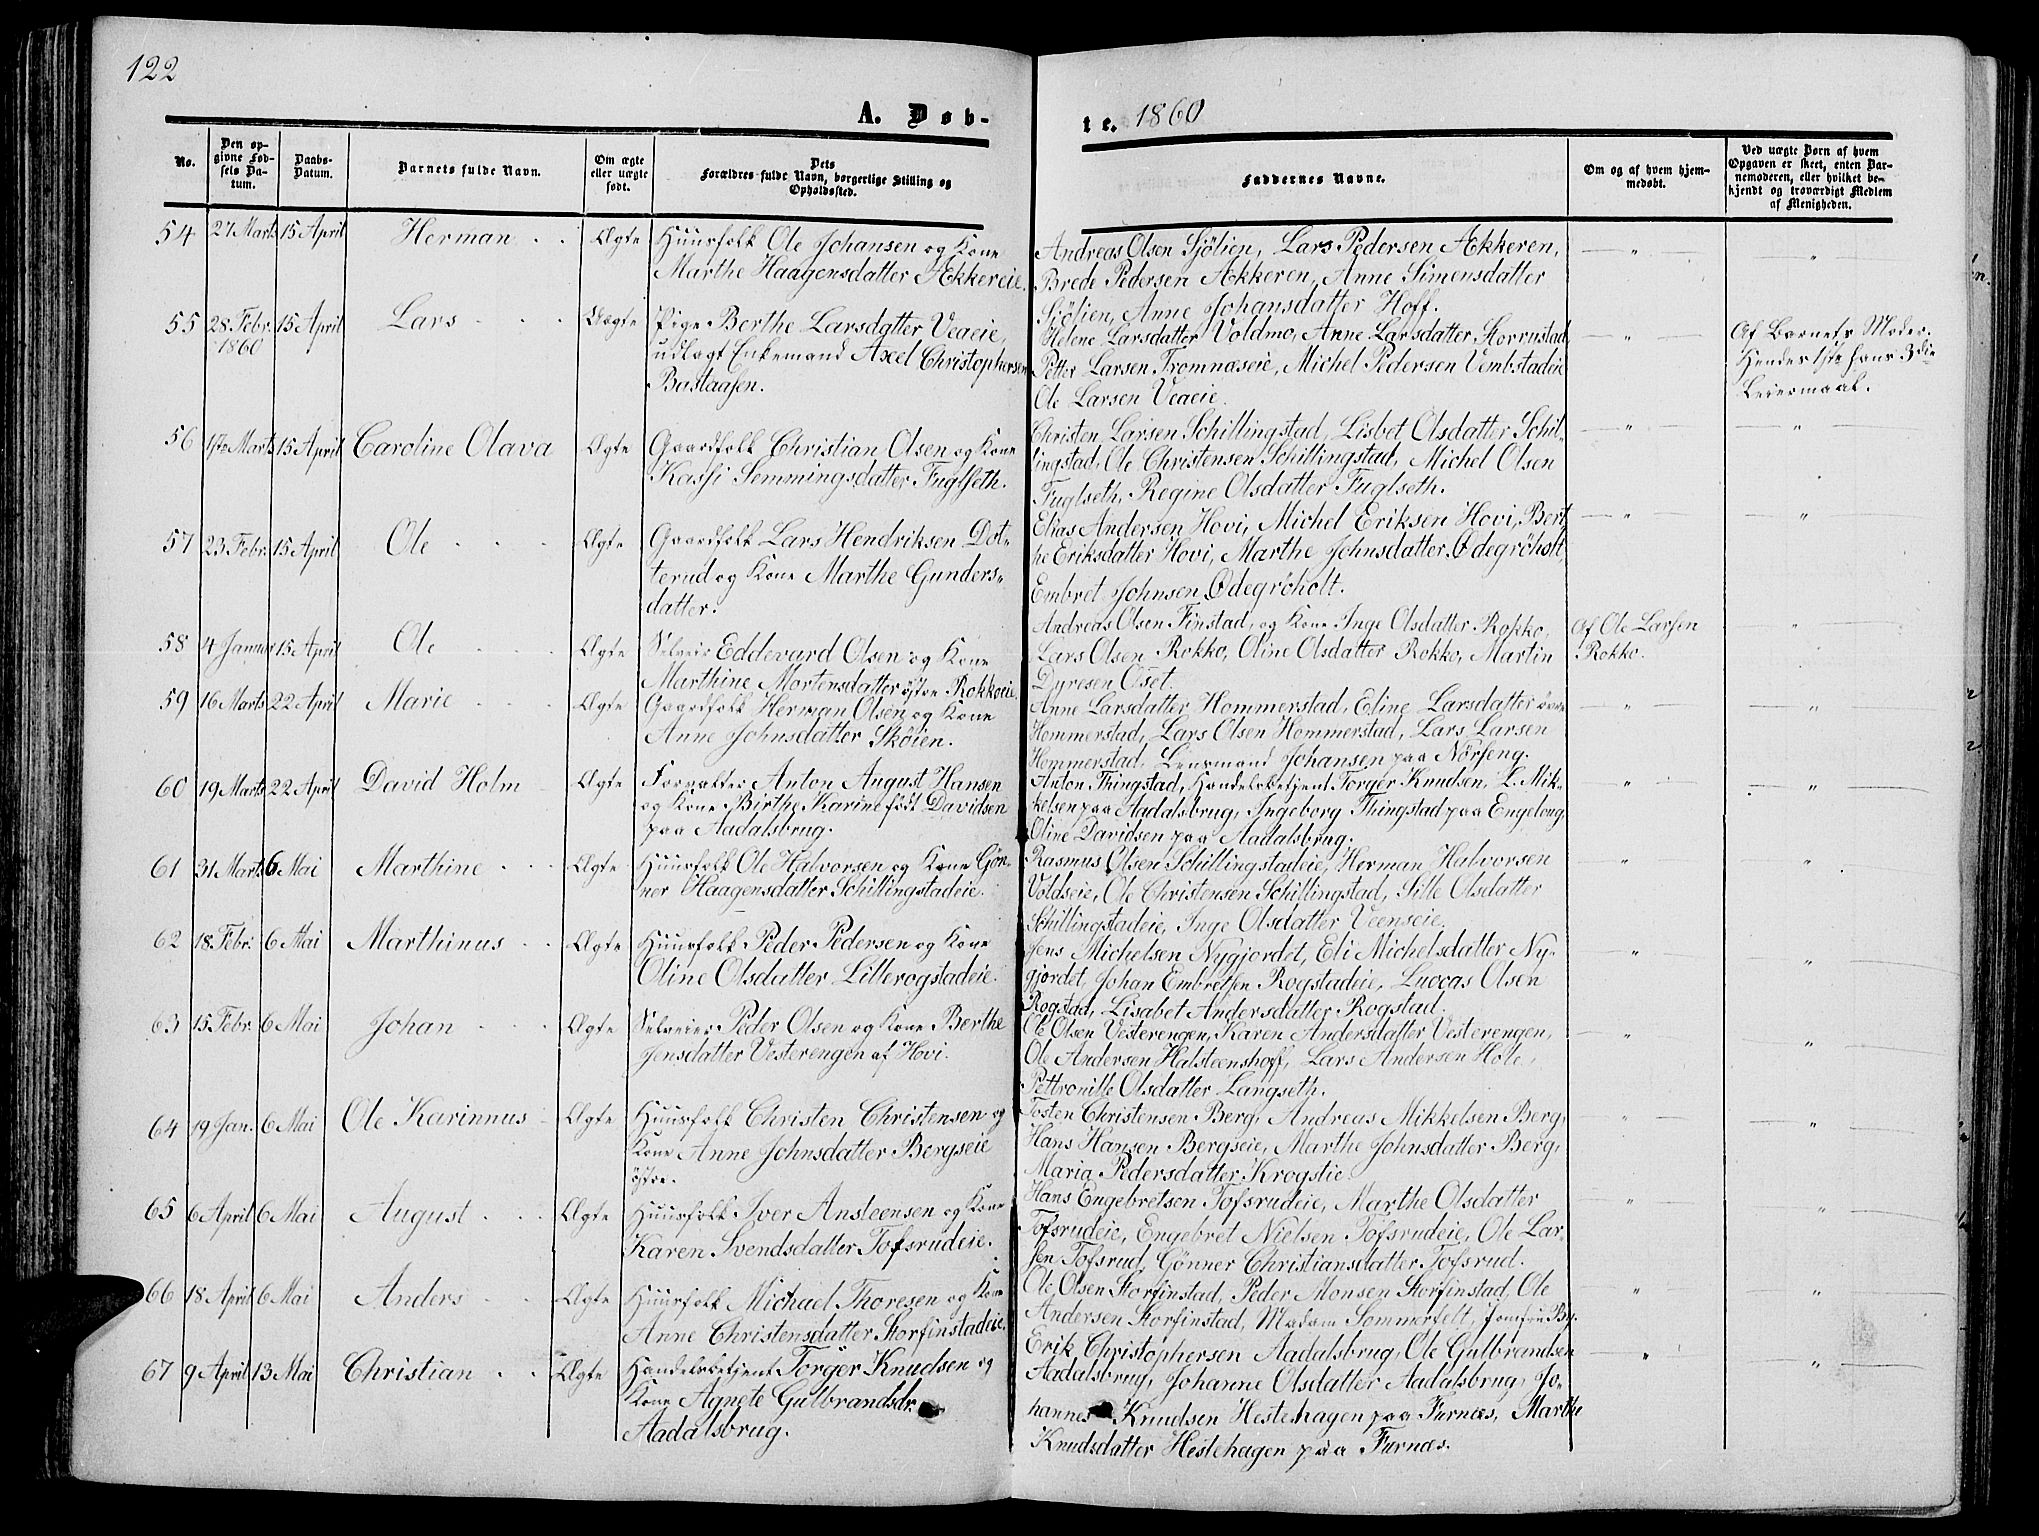 122
A. Døb-
te. 1860
No.
Den op-
givne Fød-
sels Da-
tum.
Daabs-
Datum.
Barnets fulde Navn.
Om ægte
eller uægte
født.
Dets
Forældres fulde Navn, borgerlige Stilling og
Opholdssted.
Faddernes Navne.
Om og af hvem hjem-
medøbt.
Ved uægte Børn af hvem
Opgaven er skeet, enten Bar-
nemoderen, eller hvilket be-
kjendt og troværdigt Medlem
af Menigheden.
54 27 Marts 15 April Herman Ægte Huusfolk Ole Johansen og Kone
Marthe Haagensdatter Ækkereie.
Andreas Olsen Sjölien, Lars Pedersen Ækkeren,
Brede Pedersen Ækkeren, Anne Simensdatter
Sjölien, Anne Johansdatter Hoff.
55 28 Febr. 15 April Lars Uægte Pige Berthe Larsdatter Veaeie,
1860
udlagt Enkemand Axel Christophersen
Bastaasen.
Helene Larsdatter Voldmo, Anne Larsdatter Korrustad,
Petter Larsen Tromnæseie, Michel Pedersen Vembstadeie
Ole Larsen Veaeie.
Af Barnets Moder.
Hendes 1ste hans 3die
Leiermaal.
56 1ste Marts 15 April Caroline Olava Ægte Gaardfolk Christian Olsen og Kone
Kassi Semmingsdatter Fuglseth.
Christen Larsen Schillingstad, Lisbet Olsdatter Schil-
lingstad, Ole Christensen Schillingstad, Michel Olsen
Fuglseth, Regine Olsdatter Fuglseth.
57 23 Febr. 15 April Ole Ægte Gaardfolk Lars Hendriksen Dot-
terud og Kone Marthe Gunders-
datter.
Elias Andersen Hovi, Michel Eriksen Hovi, Bert-
he Eriksdatter Hovi, Marthe Johnsdatter Ødegröholt,
Embret Johnsen Ødegröholt.
58 4 Januar 15 April Ole Ægte Selveier Eddevard Olsen og Kone
Marthine Mortensdatter östre Rokkoeie.
Andreas Olsen Finstad, og Kone Inge Olsdatter Rokko,
Lars Olsen Rokko, Oline Olsdatter Rokko, Martin
Dyresen Oset.
Af Ole Larsen
Rokko.
59 16 Marts 22 April Marie Ægte Gaardfolk Herman Olsen og Kone
Anne Johnsdatter Sköien.
Anne Larsdatter Hommerstad, Eline Larsdatter övre
Hommerstad, Lars Olsen Hommerstad, Lars Larsen
Hommerstad, Lensmand Johansen paa Nörseng.
60 19 Marts 22 April David Holm Ægte Forvalter Anton August Hansen
og Kone Birthe Karine født Davidsen
paa Aadalsbrug.
Anton Thingstad, Handelsbetjent Torger Knudsen, L. Mik-
kelsen paa Aadalsbrug, Ingeborg Thingstad paa Engelong,
Oline Davidsen paa Aadalsbrug.
61 31 Marts 6 Mai Marthine Ægte Huusfolk Ole Halvorsen og Kone Gön-
ner Haagensdatter Schillingstadeie.
Rasmus Olsen Schillingstadeie, Herman Halvorsen
Voldseie, Ole Christensen Schillingstad, Sille Olsdatter
Schillingstadeie, Inge Olsdatter Veenseie.
62 18 Febr. 6 Mai Marthinus Ægte Huusfolk Peder Pedersen og Kone
Oline Olsdatter Lillerogstadeie.
Jens Michelsen Nygjordet, Eli Michelsdatter Ny-
gjordet, Johan Embretsen Rogstadeie, Luccas Olsen
Rogstad, Lisabet Andersdatter Rogstad.
63 15 Febr. 6 Mai Johan Ægte Selveier Peder Olsen og Kone Berthe
Jensdatter Vesterengen af Hovi.
Ole Olsen Vesterengen, Karen Andersdatter Vesterengen,
Ole Andersen Halsteenshoff, Lars Andersen Hole,
Pettronille Olsdatter Langseth.
64 19 Jan. 6 Mai Ole Karinnus Ægte Huusfolk Christen Christensen og
Kone Anne Johnsdatter Bergseie
östre.
Tosten Christensen Berg, Andreas Mikkelsen Berg,
Hans Hansen Bergseie, Marthe Johnsdatter Berg,
Maria Pedersdatter Krogstie.
65 6 April 6 Mai August Ægte Huusfolk Iver Ansteensen og Kone
Karen Svendsdatter Tofsrudeie.
Hans Engebretsen Tofsrudeie, Marthe Olsdatter
Tofsrudeie, Engebret Nielsen Tofsrudeie, Ole Lar-
sen Tofsrud, Gönner Christiansdatter Tofsrud.
66 18 April 6 Mai Anders Ægte Huusfolk Michael Thoresen og Kone
Anne Christensdatter Storfinstadeie.
Ole Olsen Storfinstad, Peder Monsen Storfinstad, Ole
Andersen Storfinstad, Madam Sommerfelt, Jomfru By.
67 9 April 13 Mai Christian Ægte Handelsbetjent Torger Knudsen og
Kone Agnete Gulbrandsdr.
Aadalsbrug.
Erik Christophersen Aadalsbrug, Ole Gulbrandsen
Aadalsbrug, Johanne Olsdatter Aadalsbrug, Jo-
hannes Knudsen Hestehagen paa Furnes, Marthe
Knudsdatter Hestehagen paa Furnæs.